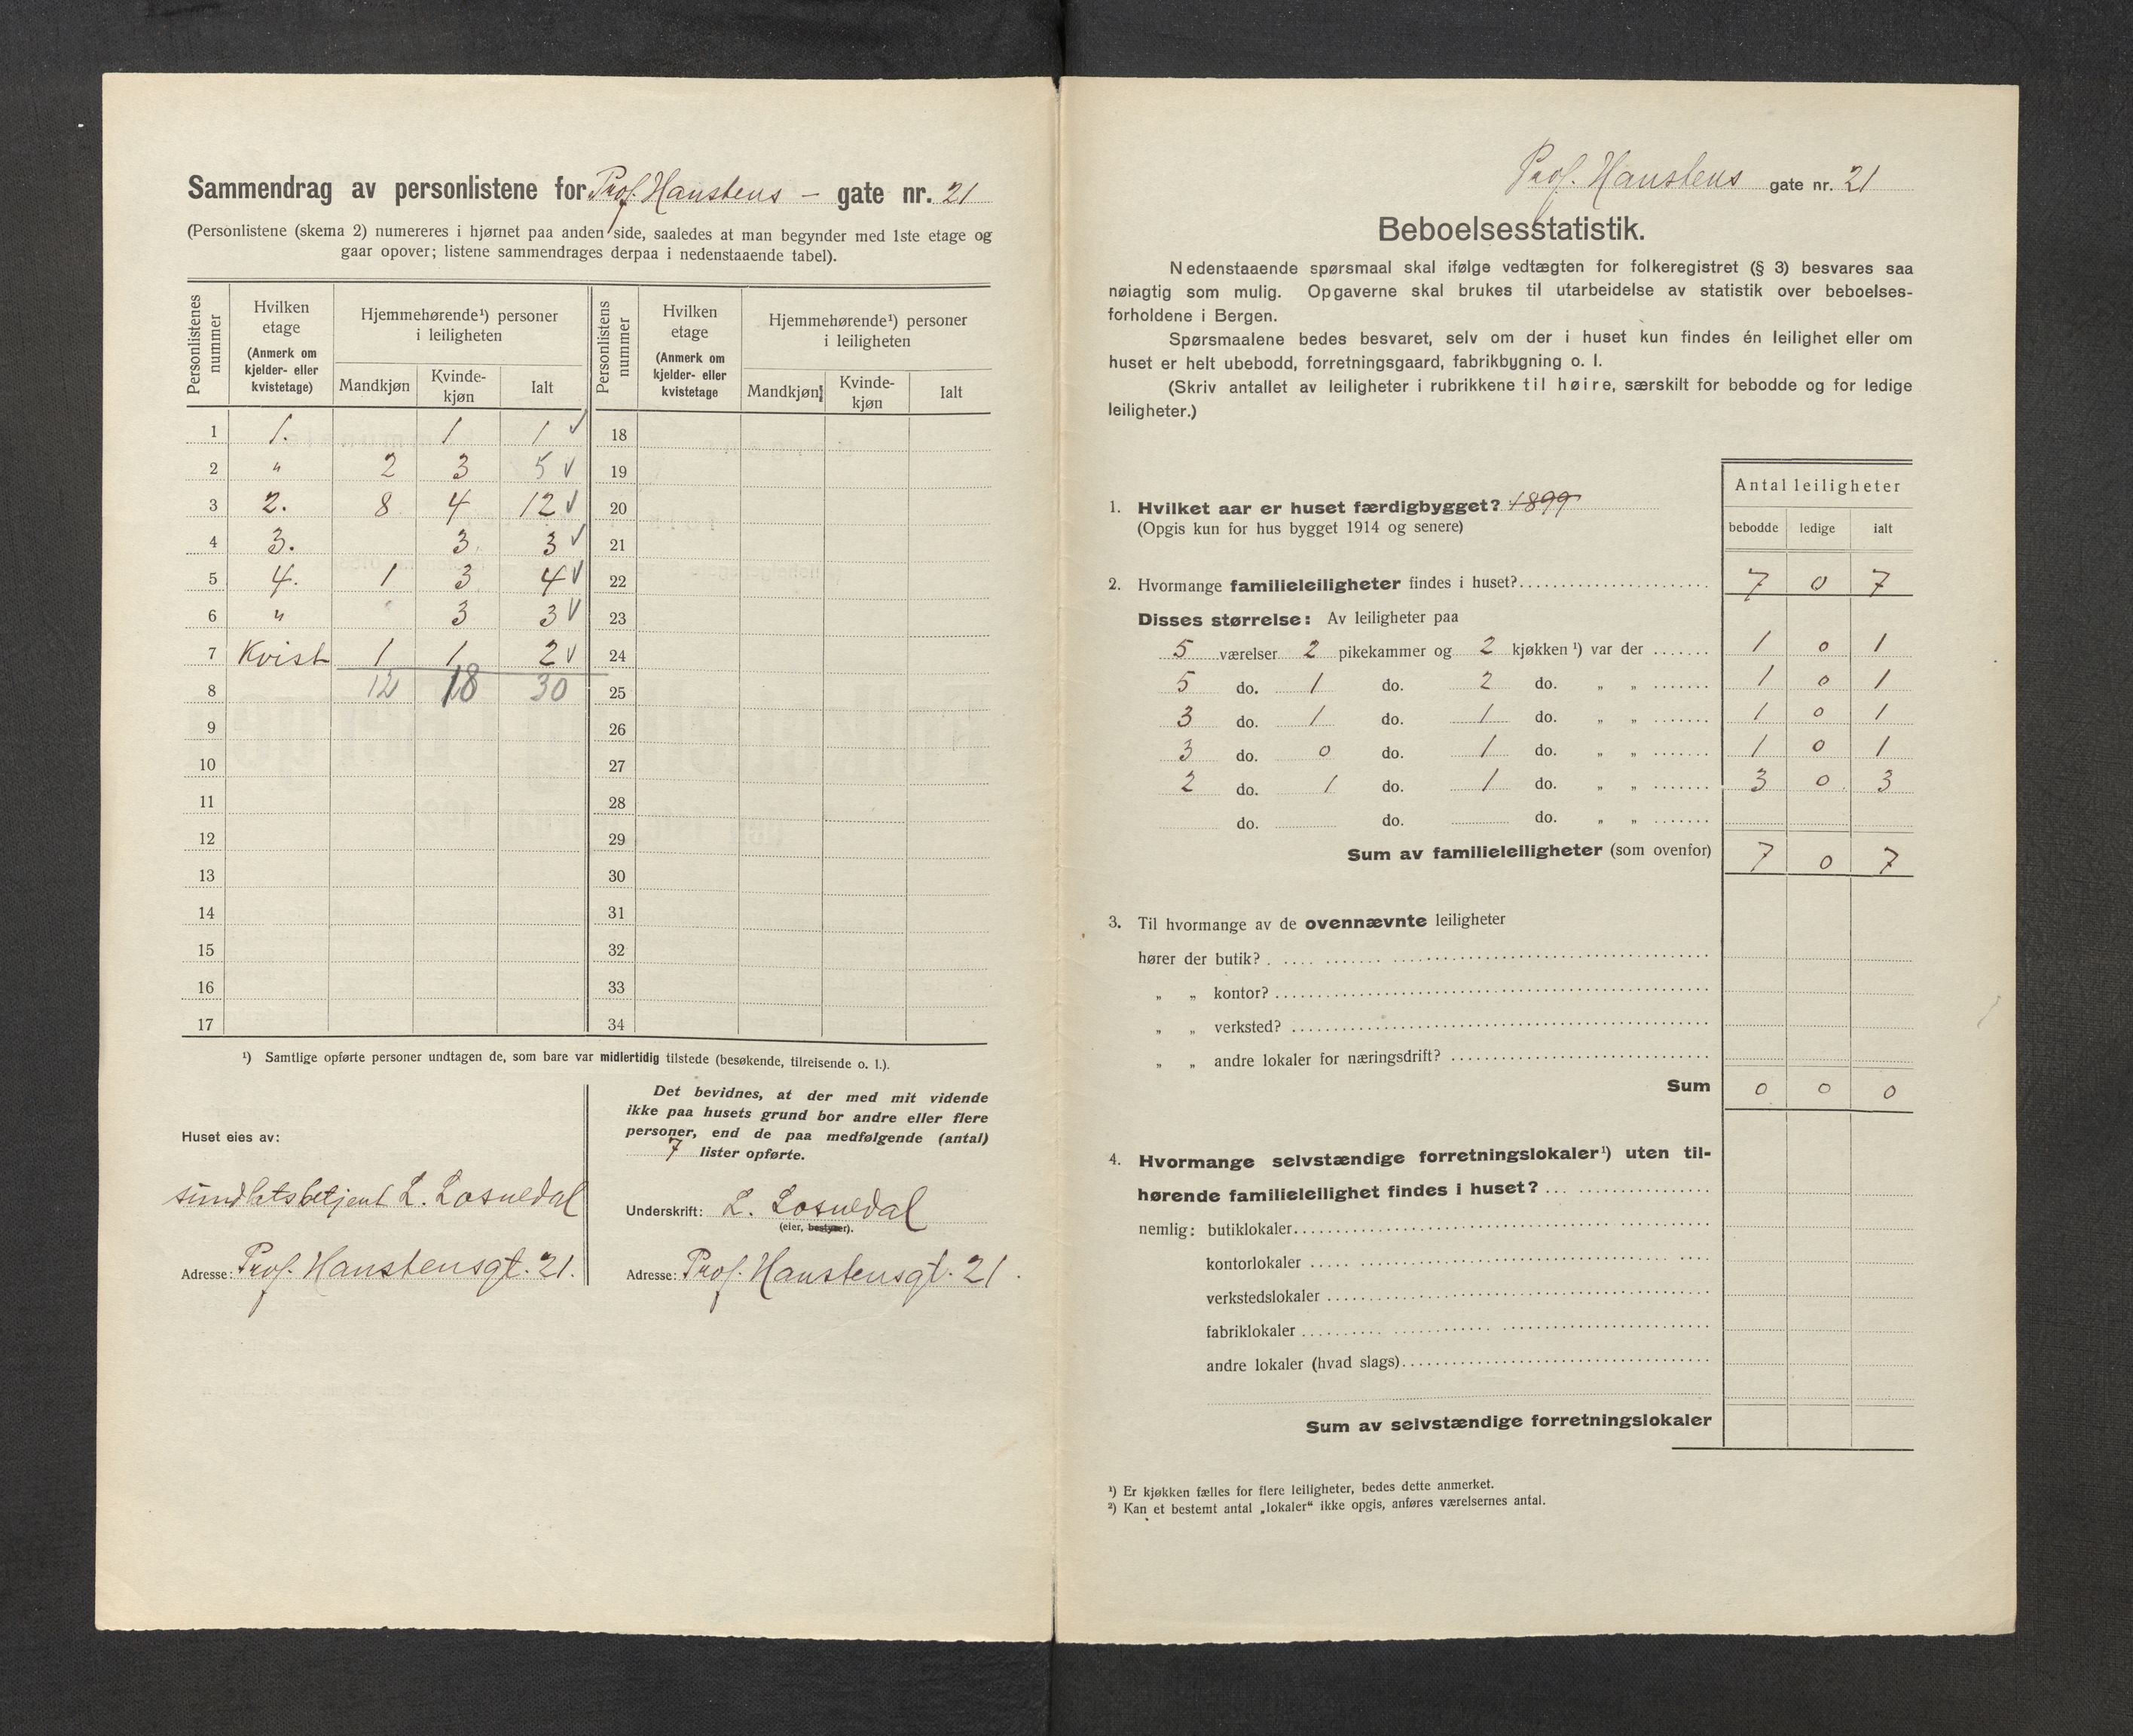 Sammendrag av personlistene for Prof. Hanstens - gate nr. 21
(Personlistene (skema 2) numereres i hjørnet paa anden side, saaledes at man begynder med 1ste etage og
gaar opover; listene sammendrages derpaa i nedenstaaende tabel).
Personlistenes nummer
Hvilken etage (Anmerk om kjelder- eller kvistetage)
Hjemmehørende¹) personer i leiligheten
Mandkjøn Kvindekjøn Ialt
Personlistens nummer
Hvilken etage (Anmerk om kjelder- eller kvistetage
Hjemmehørende¹) personer i leiligheten
Mandkjøn Kvindekjøn Ialt
1 1. 1 1 ✓ 18
2 " 2 3 5 ✓ 19
3 2. 8 4 12 ✓ 20
4 3. 3 3 ✓ 21
5 4. 1 3 4 ✓ 22
6 " 3 3 ✓ 23
7 Kvist 1 1 2 ✓ 24
8 12 18 30 25
9 26
10 27
11 28
12 29
13 30
14 31
15 32
16 33
17 34
¹) Samtlige opførte personer undtagen de, som bare var midlertidig tilstede (besøkende, tilreisende o. l.).
Huset eies av:
L. Losnedal
Adresse: Prof. Hanstensgt. 21.
Det bevidnes, at der med mit vidende
ikke paa husets grund bor andre eller flere
personer, end de paa medfølgende (antal)
7 lister opførte.
Underskrift: L. Losnedal
(eier, bestyrer).
Adresse: Prof. Hanstensgt. 21.
Prof. Hanstens gate nr. 21
Beboelsesstatistik.
Nedenstaaende spørsmaal skal ifølge vedtægten for folkeregistret (§ 3) besvares saa
nøiagtig som mulig. Opgaverne skal brukes til utarbeidelse av statistik over beboelses-
forholdene i Bergen.
Spørsmaalene bedes besvaret, selv om der i huset kun findes én leilighet eller om
huset er helt ubebodd, forretningsgaard, fabrikbygning o. l.
(Skriv antallet av leiligheter i rubrikkene til høire, særskilt for bebodde og for ledige
leiligheter.)
Antal leiligheter
bebodde ledige ialt
1. Hvilket aar er huset færdigbygget? 1899
(Opgis kun for hus bygget 1914 og senere)
2. Hvormange familieleiligheter findes i huset? 7 0 7
Disses størrelse: Av leiligheter paa
5 værelser 2 pikekammer og 2 kjøkken ¹) var der 1 0 1
5 do. 1 do. 2 do. „ „ 1 0 1
3 do. 1 do. 1 do. „ „ 1 0 1
3 do. 0 do. 1 do. „ „ 1 0 1
2 do. 1 do. 1 do. „ „ 3 0 3
do. do. do. „ „
Sum av familieleiligheter (som ovenfor) 7 0 7
3. Til hvormange av de ovennævnte leiligheter
hører der butik?
„ „ kontor?
„ „ verksted?
„ „ andre lokaler for næringsdrift?
Sum 0 0 0
4. Hvormange selvstændige forretningslokaler¹) uten til-
hørende familieleilighet findes i huset?
nemlig: butiklokaler
kontorlokaler
verkstedslokaler
fabriklokaler
andre lokaler (hvad slags)
Sum av selvstændige forretningslokaler
¹) Er kjøkken fælles for flere leiligheter, bedes dette anmerket.
²) Kan et bestemt antal „lokaler“ ikke opgis, anføres værelsernes antal.